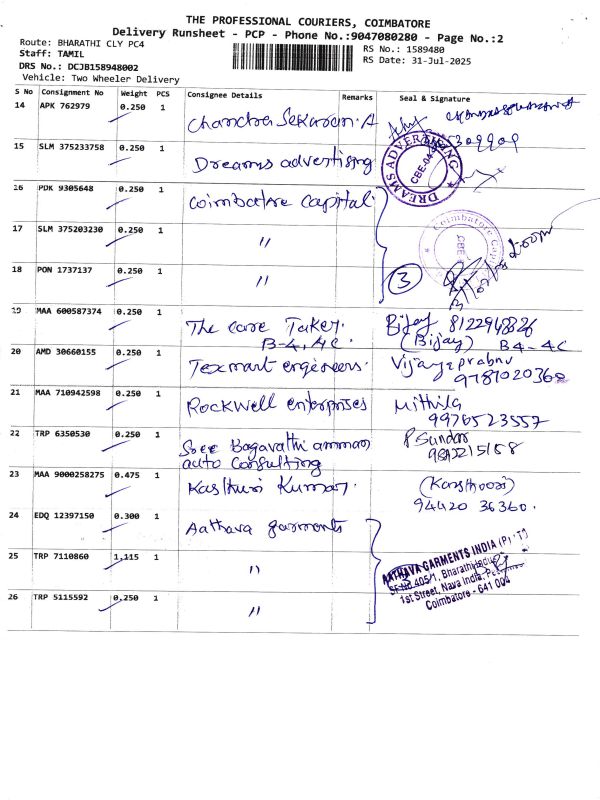 THE PROFESSIONAL COURIERS, COIMBATORE
Delivery Runsheet - PCP - Phone No.:9047080280 - Page No.:2
Route: BHARATHI CLY PC4
Staff: TAMIL
DRS No.: DCJB158948002
Vehicle: Two Wheeler Delivery
RS No.: 1589480
RS Date: 31-Jul-2025
S No Consignment No Weight PCS Consignee Details Remarks Seal & Signature
14 APK 762979 0.250 1 Chandra Sekaran. A
15 SLM 375233758 0.250 1 Dreams advertising
DREAMS ADVERTISING
CBE-04
16 PDK 9305648 0.250 1 Coimbatore capital
Coimbatore Capital
CBE
17 SLM 375203230 0.250 1 "
18 PON 1737137 0.250 1 " 3
19 MAA 600587374 0.250 1 The care Taker. Bijay 8122948826
B-4, 4C. (Bijay) B4-4C
20 AMD 30660155 0.250 1 Texmart engineers. Vijay prabhu
9787020368
21 MAA 710942598 0.250 1 Rockwell enterprises Mithila
9976523557
22 TRP 6350530 0.250 1 Sree Bagavathi amman P Sundar
auto consulting
23 MAA 9000258275 0.475 1 Kasthuri Kumar. (Kansthoori)
94420 36360.
24 EDQ 12397150 0.300 1 Aathava garments
25 TRP 7110860 1.115 1 "
AATHAVA GARMENTS INDIA (P)
SF.NO.405/1, Bharathi
1st Street, Nava India,
Coimbatore - 641 004
26 TRP 5115592 0.250 1 "